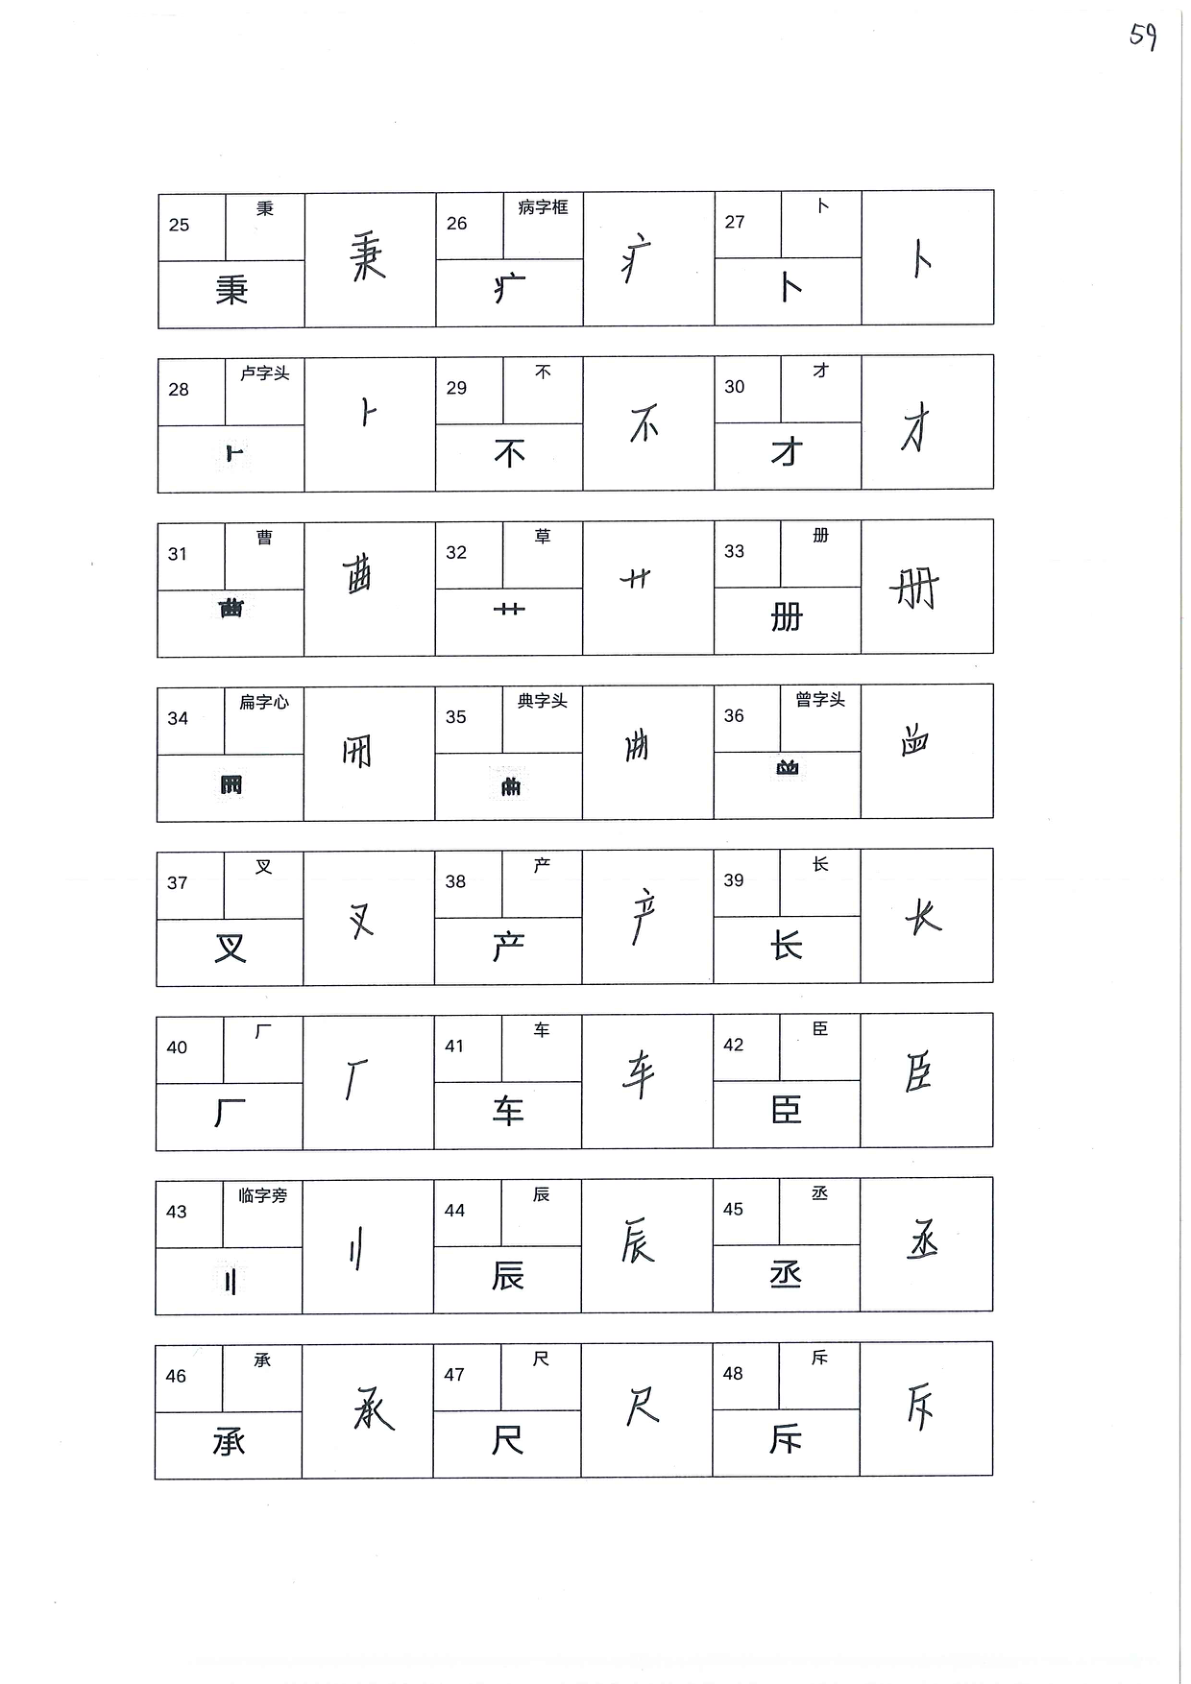 59
25 秉 秉 26 病字框 疒 27 卜 卜
秉 疒 卜
28 卢字头 ⺊ 29 不 不 30 才 才
⺊ 不 才
31 曹 32 草 艹 33 册 册
艹 册
34 扁字心 35 典字头 36 曾字头
37 叉 叉 38 产 产 39 长 长
叉 产 长
40 厂 厂 41 车 车 42 臣 臣
厂 车 臣
43 临字旁 〢 44 辰 辰 45 丞 丞
〢 辰 丞
46 承 承 47 尺 尺 48 斥 斥
承 尺 斥